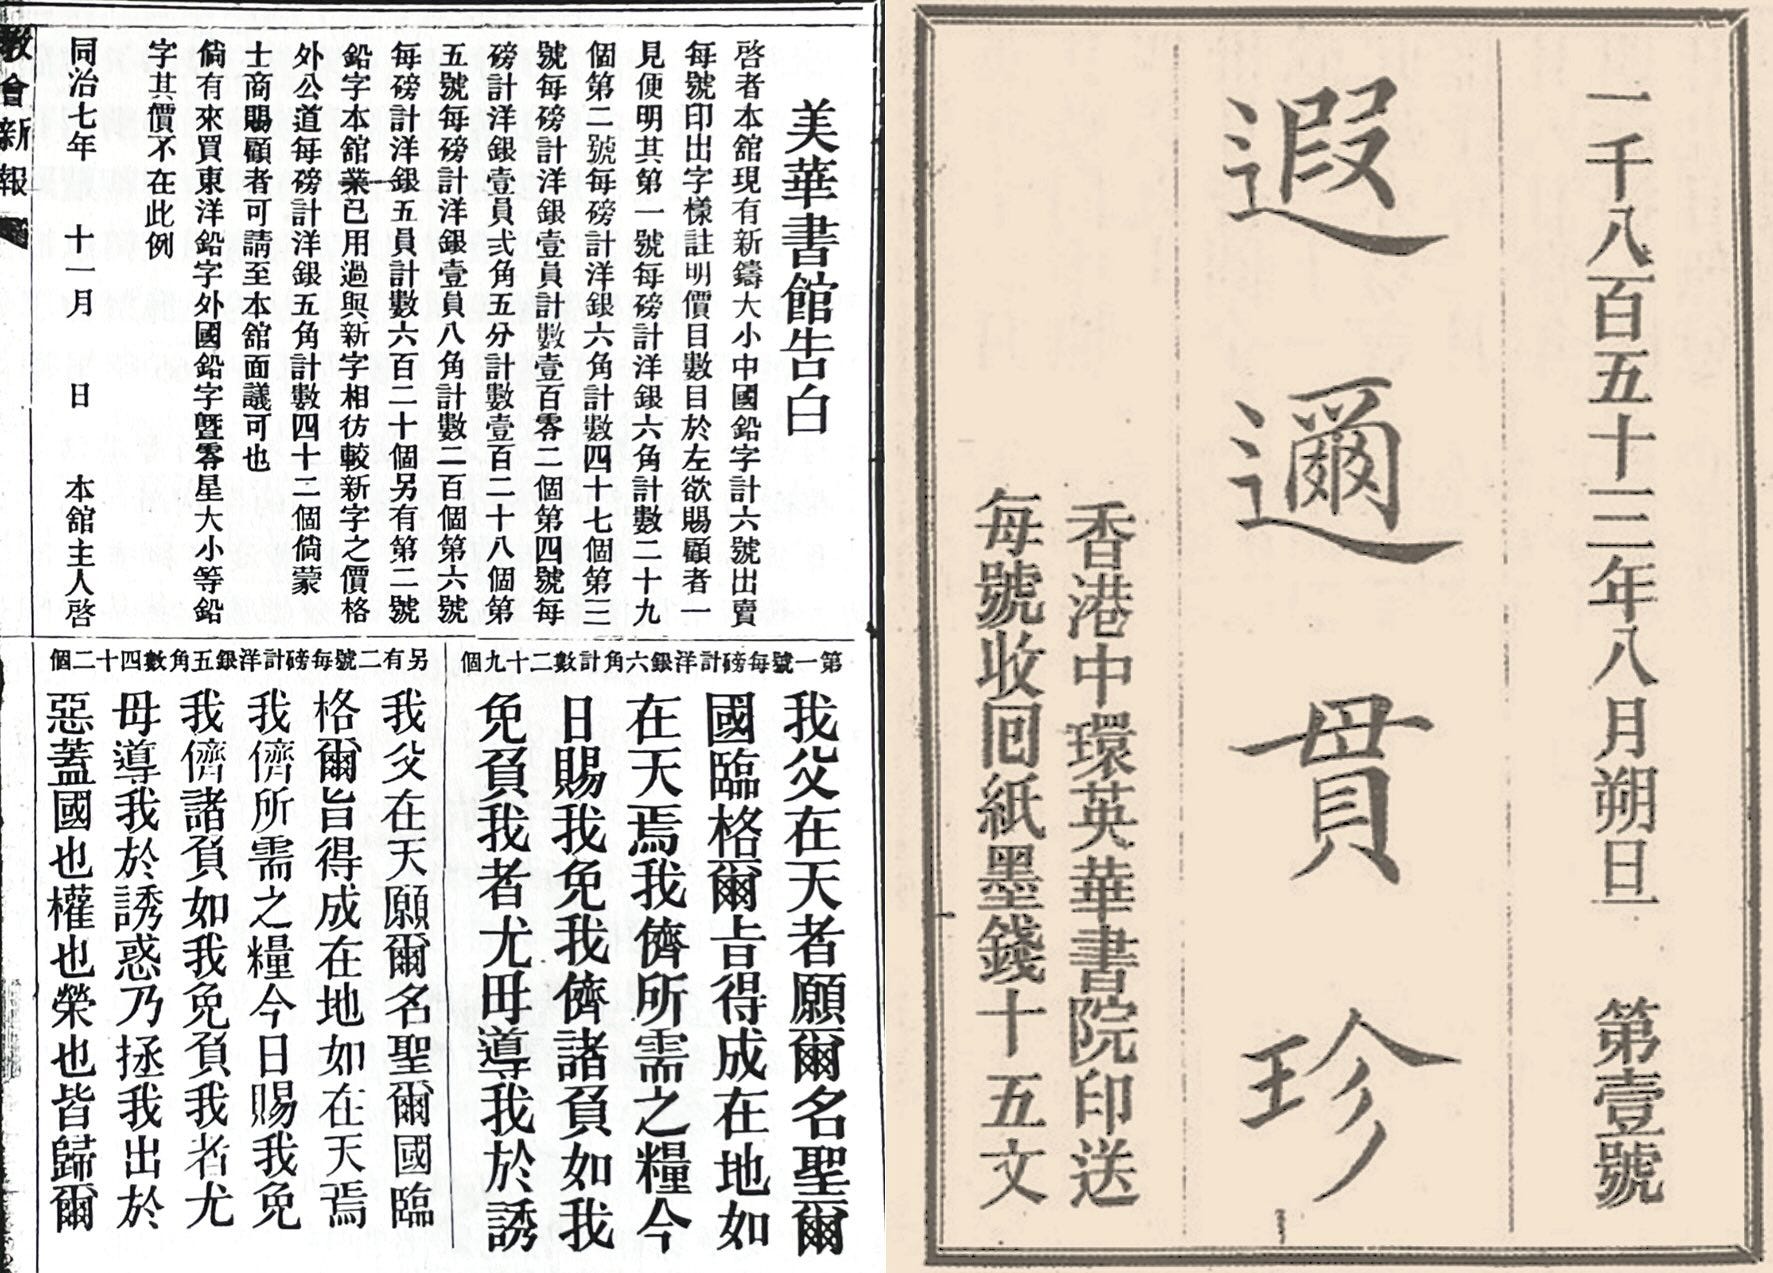 美華書館告白
啓者本舘現有新鑄大小中國鉛字計六號出賣
每號印出字樣註明價目數目於左欲賜顧者一
見便明其第一號每磅計洋銀六角計數二十九
個第二號每磅計洋銀六角計數四十七個第三
號每磅計洋銀壹員計數壹百零二個第四號每
磅計洋銀壹員弍角五分計數壹百二十八個第
五號每磅計洋銀壹員八角計數二百個第六號
每磅計洋銀五員計數六百二十個另有第二號
鉛字本舘業已用過與新字相彷較新字之價格
外公道每磅計洋銀五角計數四十二個倘蒙
士商賜顧者可請至本舘面議可也
倘有來買東洋鉛字外國鉛字暨零星大小等鉛
字其價不在此例
同治七年 十一月 日 本舘主人啓
教會新報
第一號每磅計洋銀六角計數二十九個
我父在天者願爾名聖爾
國臨格爾旨得成在地如
在天焉我儕所需之糧今
日賜我免我儕諸負如我
免負我者尤毋導我於誘
另有二號每磅計洋銀五角數四十二個
我父在天願爾名聖爾國臨
格爾旨得成在地如在天焉
我儕所需之糧今日賜我免
我儕諸負如我免負我者尤
毋導我於誘惑乃拯我出於
惡蓋國也權也榮也皆歸爾
一千八百五十三年八月朔旦 第壹號
遐邇貫珍
香港中環英華書院印送
每號收回紙墨錢十五文